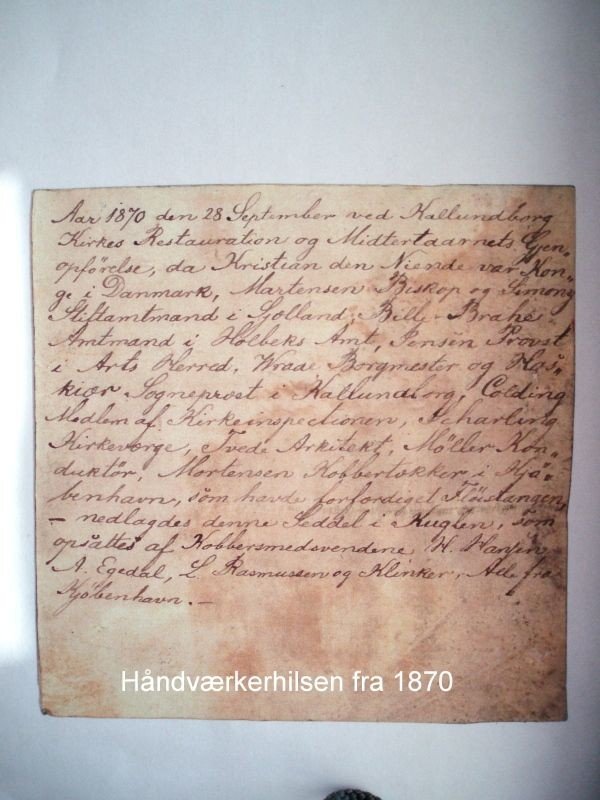 Aar 1870 den 28 September ved Kallundborg
Kirkes Restauration og Midtertaarnets Gjen-
opförelse, da Kristian den Niende var Kon-
ge i Danmark, Martensen Biskop og Simony
Stiftamtmand i Sjælland, Bille-Brahe
Amtmand i Holbeks Amt, Jensen Provst
i Arts Herred, Wraae Borgmester og Has-
kiær Sogneprest i Kallundborg, Colding
Medlem af Kirkeinspectionen, Scharling
Kirkeværge, Tvede Arkitekt, Möller Kon-
duktör, Mortensen Kobbertækker i Kjö-
benhavn, som havde forfærdiget Flöistangen,
– nedlagdes denne Seddel i Kuglen, som
opsattes af Kobbersmedsvendene H. Hansen
A. Egedal, L. Rasmussen og Klinker, Alle fra
Kjöbenhavn. –
Håndværkerhilsen fra 1870